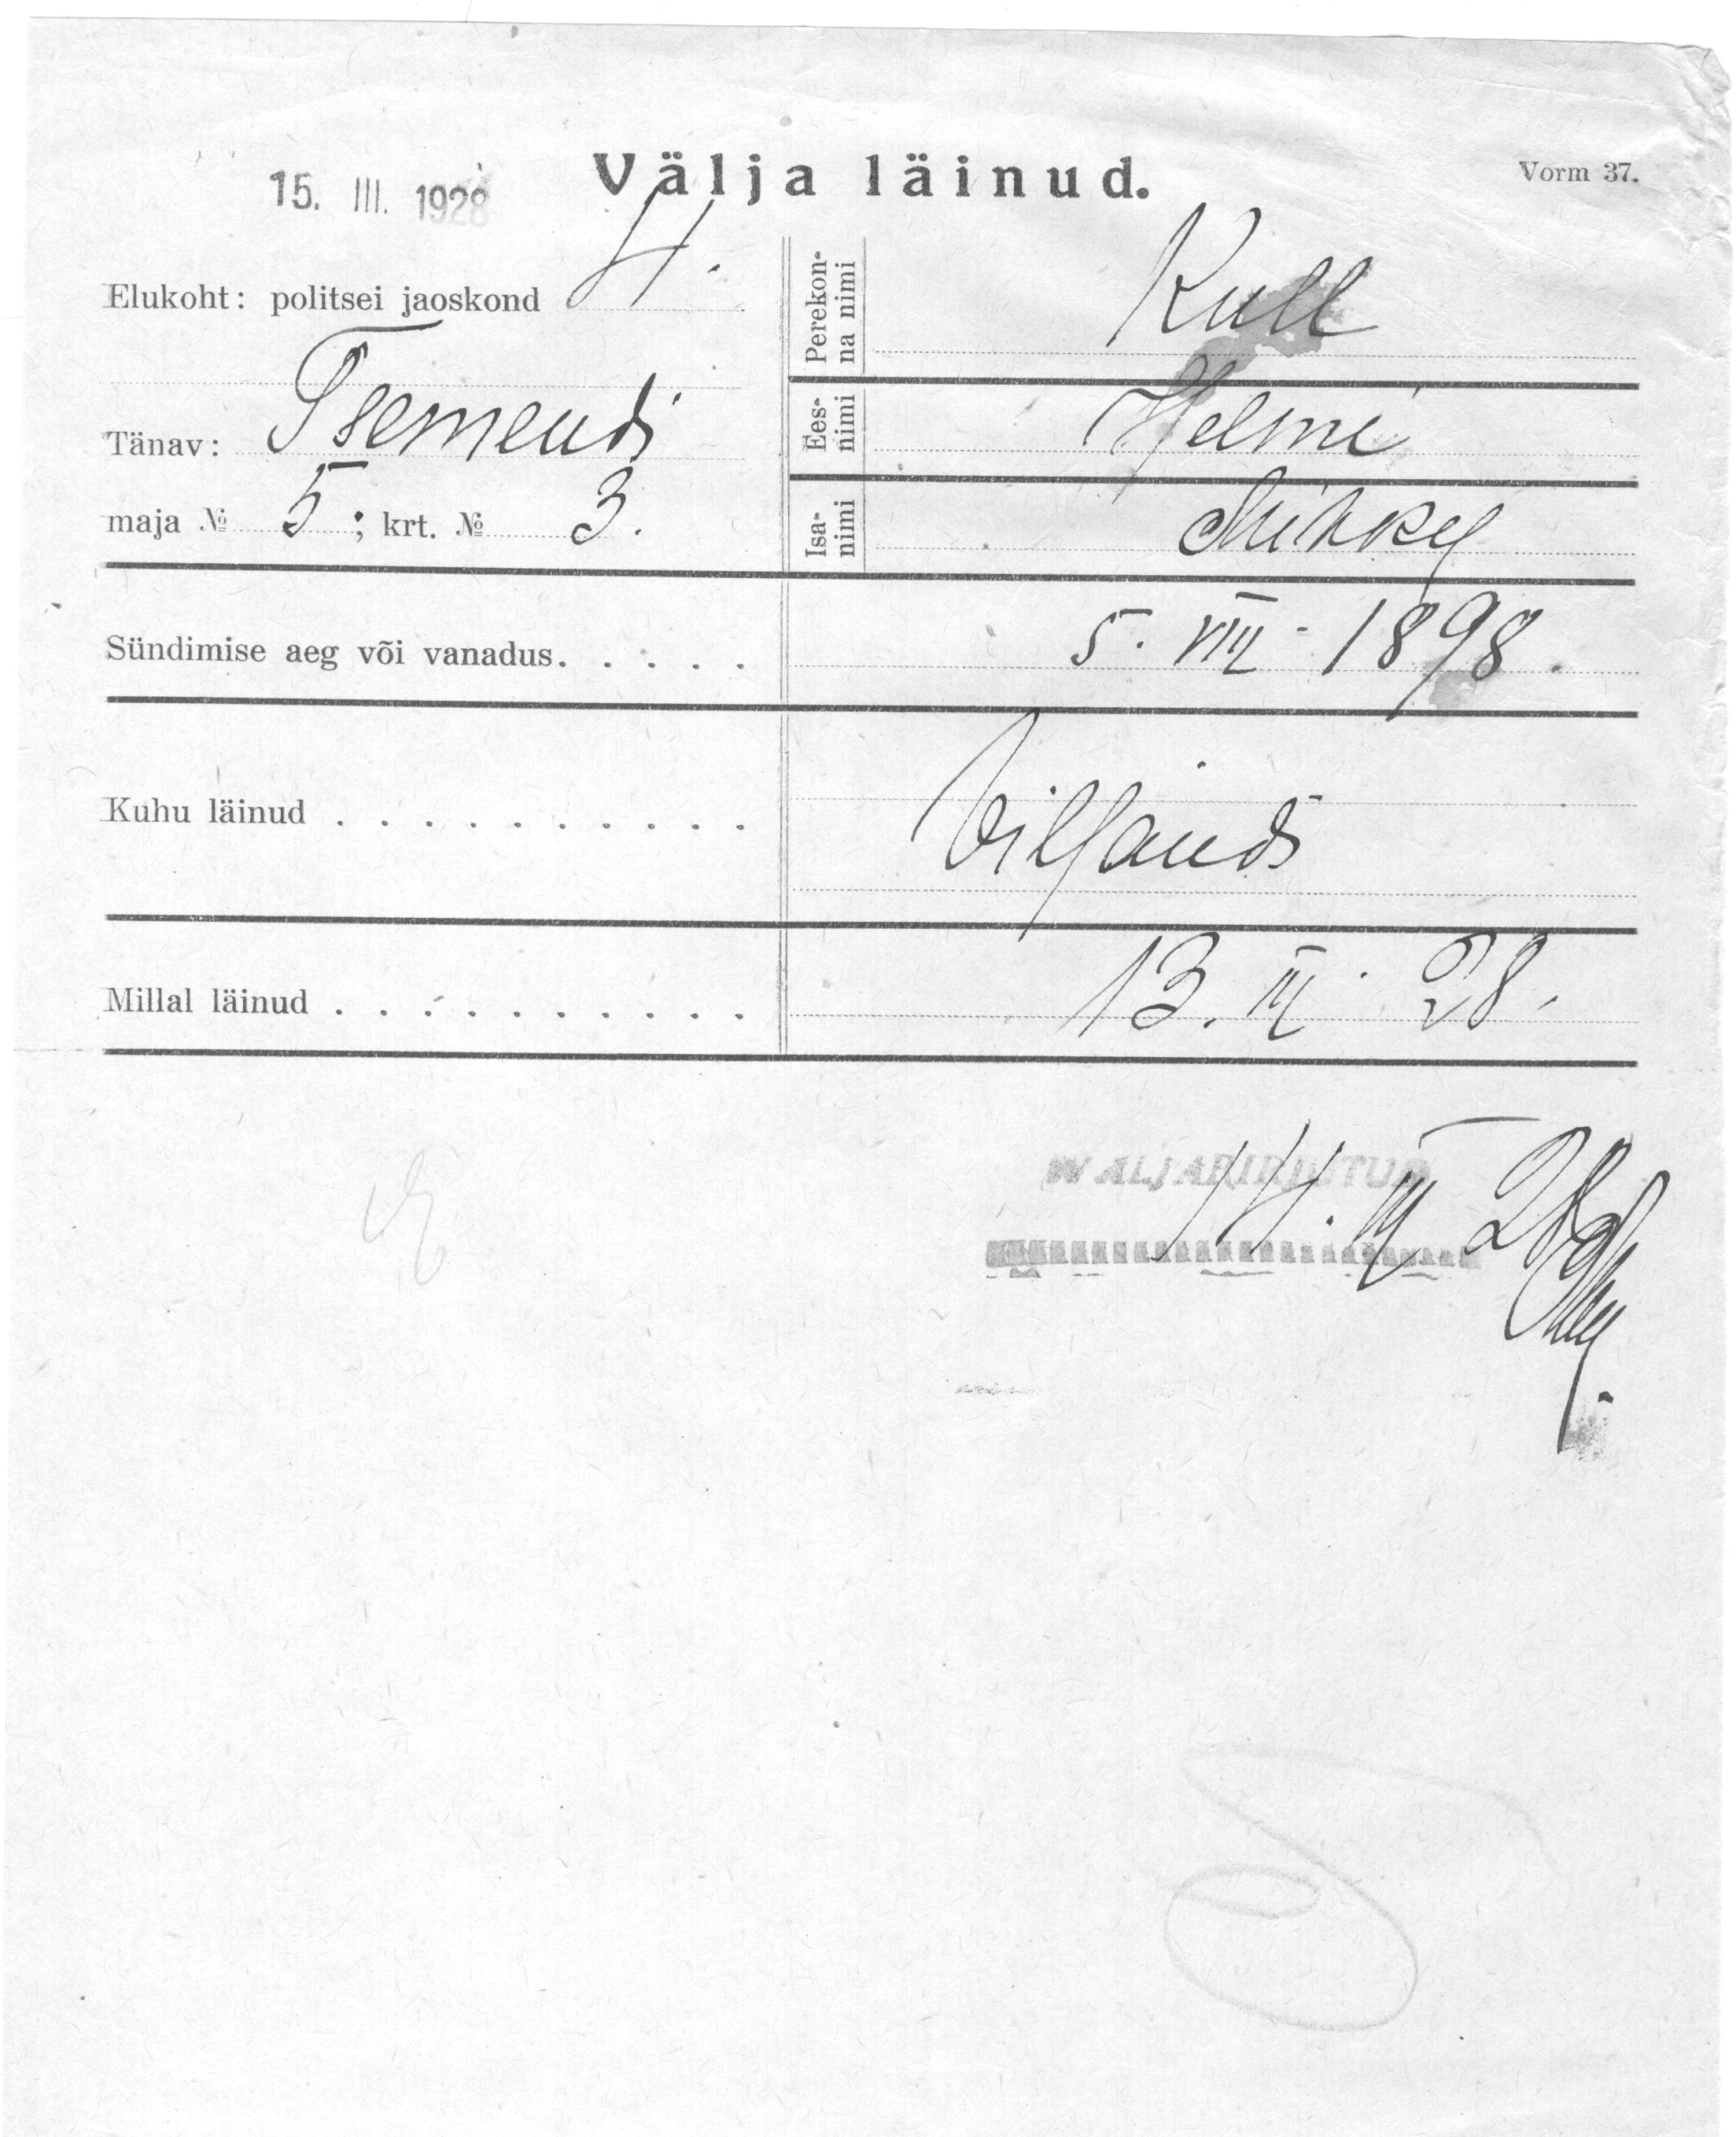 15. III. 1928
Välja läinud.
Vorm 37.
Elukoht: politsei jaoskond 4.
Tänav: Tsemendi
maja № 5; krt. № 3.
Perekon-
na nimi
Kull
Ees-
nimi
Helmi
Isa-
nimi
Mihkel
Sündimise aeg või vanadus. . . . . 5. VIII. 1898.
Kuhu läinud . . . . . . . . . . Viljandi
Millal läinud . . . . . . . . . . 13. III. 28.
WALJAKIRJUTUD
14. III 28